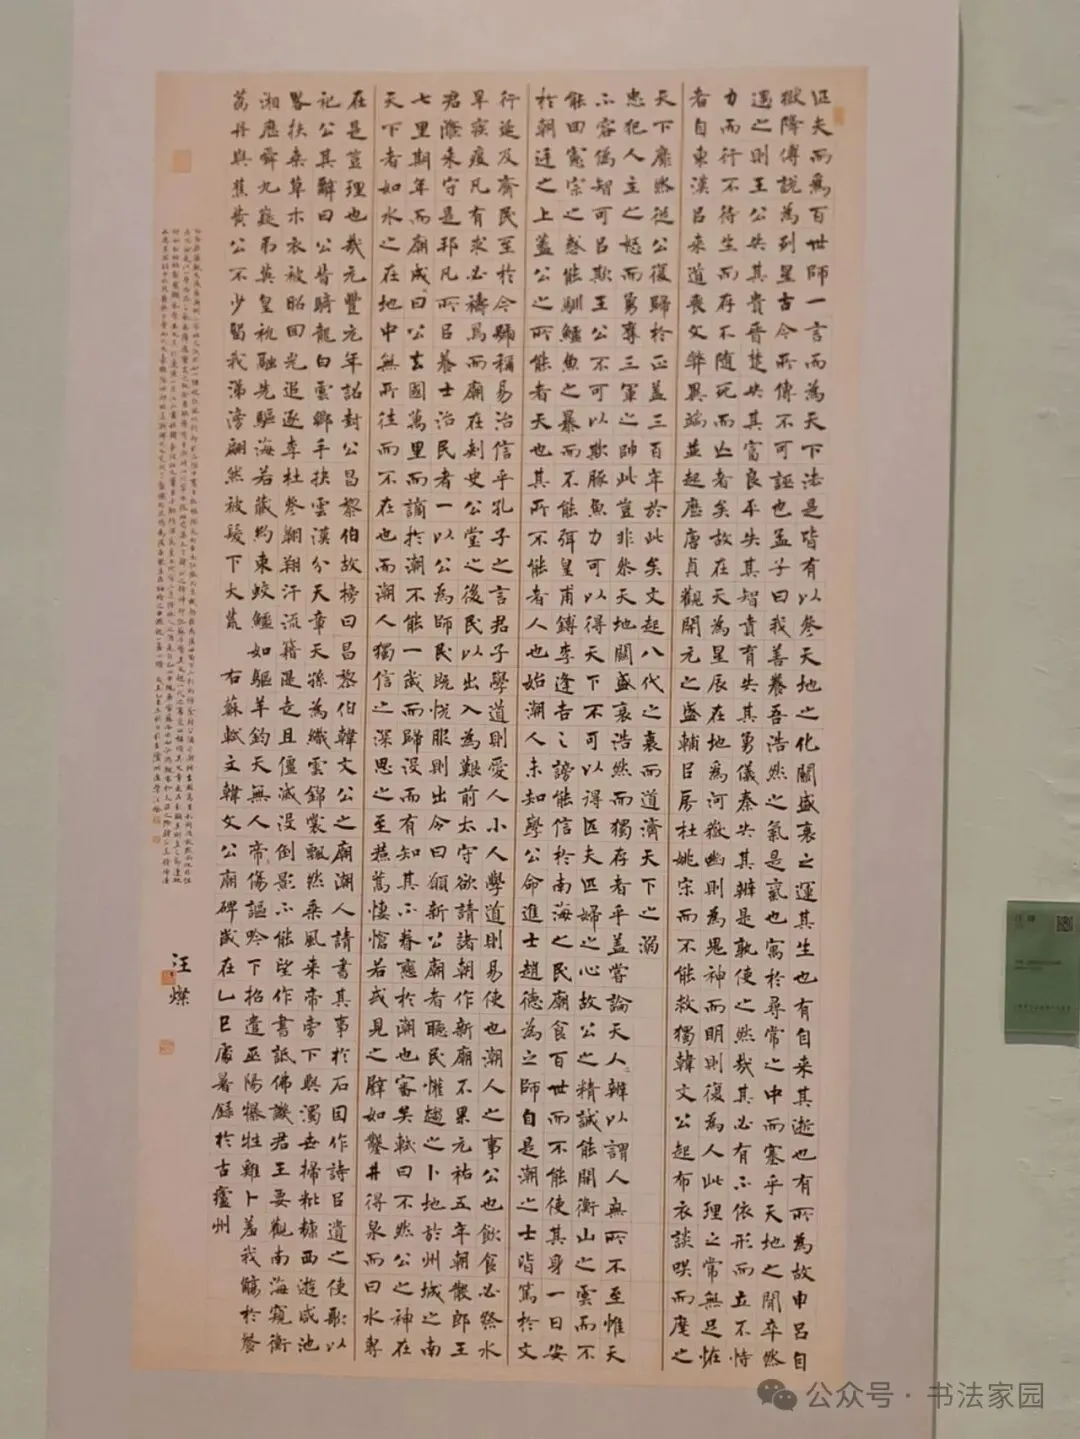 匹夫而為百世師一言而為天下法是皆有以參天地之化關盛衰之運其生也有自来其逝也有所為故申呂自
嶽降傅説為列星古今所傳不可誣也孟子曰我善養吾浩然之氣是氣也寓於尋常之中而塞乎天地之閒卒然
遇之則王公失其貴晉楚失其富良平失其智賁有失其勇儀秦失其辨是孰使之然哉其必有不依形而立不恃
力而行不待生而存不随死而亡者矣故在天為星辰在地為河嶽幽則為鬼神而明則復為人此理之常無足怪
者自東漢㠯来道喪文弊異端並起歷唐貞觀開元之盛輔㠯房杜姚宋而不能救獨韓文公起布衣談咲而麾之
天下靡然從公復歸於正蓋三百年於此矣文起八代之衰而道濟天下之溺
忠犯人主之怒而勇奪三軍之帥此豈非參天地關盛衰浩然而獨存者乎蓋嘗論天人辨以謂人無所不至惟天
不容偽智可㠯欺王公不可以欺豚魚力可以得天下不可以得匹夫匹婦之心故公之精誠能開衡山之雲而不
能回憲宗之惑能馴鱷魚之暴而不能弭皇甫鎛李逢吉之謗能信於南海之民廟食百世而不能使其身一日安
於朝廷之上蓋公之所能者天也其所不能者人也始潮人未知學公命進士趙德為之師自是潮之士皆篤於文
行延及齊民至於今號稱易治信乎孔子之言君子學道則愛人小人學道則易使也潮人之事公也飲食必祭水
旱疾疫凡有求必禱焉而廟在刺史公堂之後民以出入為艱前太守欲請諸朝作新廟不果元祐五年朝散郎王
君滌来守是邦凡所㠯養士治民者一以公為師民既悅服則出令曰願新公廟者聽民懽趨之卜地於州城之南
七里期年而廟成曰公去國萬里而謫於潮不能一歲而歸没而有知其不眷戀於潮也審矣軾曰不然公之神在
天下者如水之在地中無所往而不在也而潮人獨信之深思之至焄蒿悽愴若或見之譬如鑿井得泉而曰水專
在是豈理也哉元豐元年詔封公昌黎伯故榜曰昌黎伯韓文公之廟潮人請書其事於石因作詩㠯遺之使歌以
記公其辭曰公昔騎龍白雲鄉手抉雲漢分天章天孫為織雲錦裳飄然乘風来帝旁下與濁世掃粃糠西遊咸池
略扶桑草木衣被昭回光追逐李杜參翱翔汗流籍湜走且僵滅没倒影不能望作書詆佛譏君王要觀南海窺衡
湘歷舜九嶷弔英皇祝融先驅海若藏約束蛟鱷如驅羊鈞天無人帝傷謳吟下招遣巫陽犦牲雞卜羞我觴於粲
荔丹與蕉黄公不少留我涕滂翩然被髮下大荒 右蘇軾文韓文公廟碑歲在乙巳處暑録於古瀘州
汪燦
公众号·书法家园